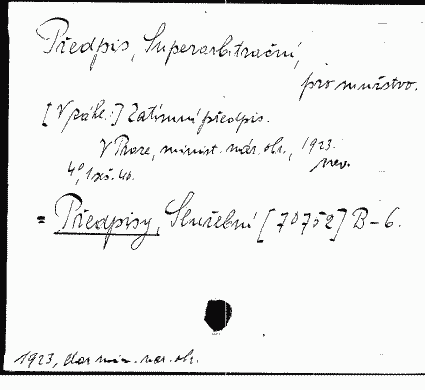 Předpis, Superarbitrační,
pro mužstvo.
[V záhl.:] Zatímní předpis.
V Praze, minist. nár. obr., 1923.
nev.
4°, 1 seš. 46.
= Předpisy, Služební [70752] B-6.
1923, dar min. nár. ob.